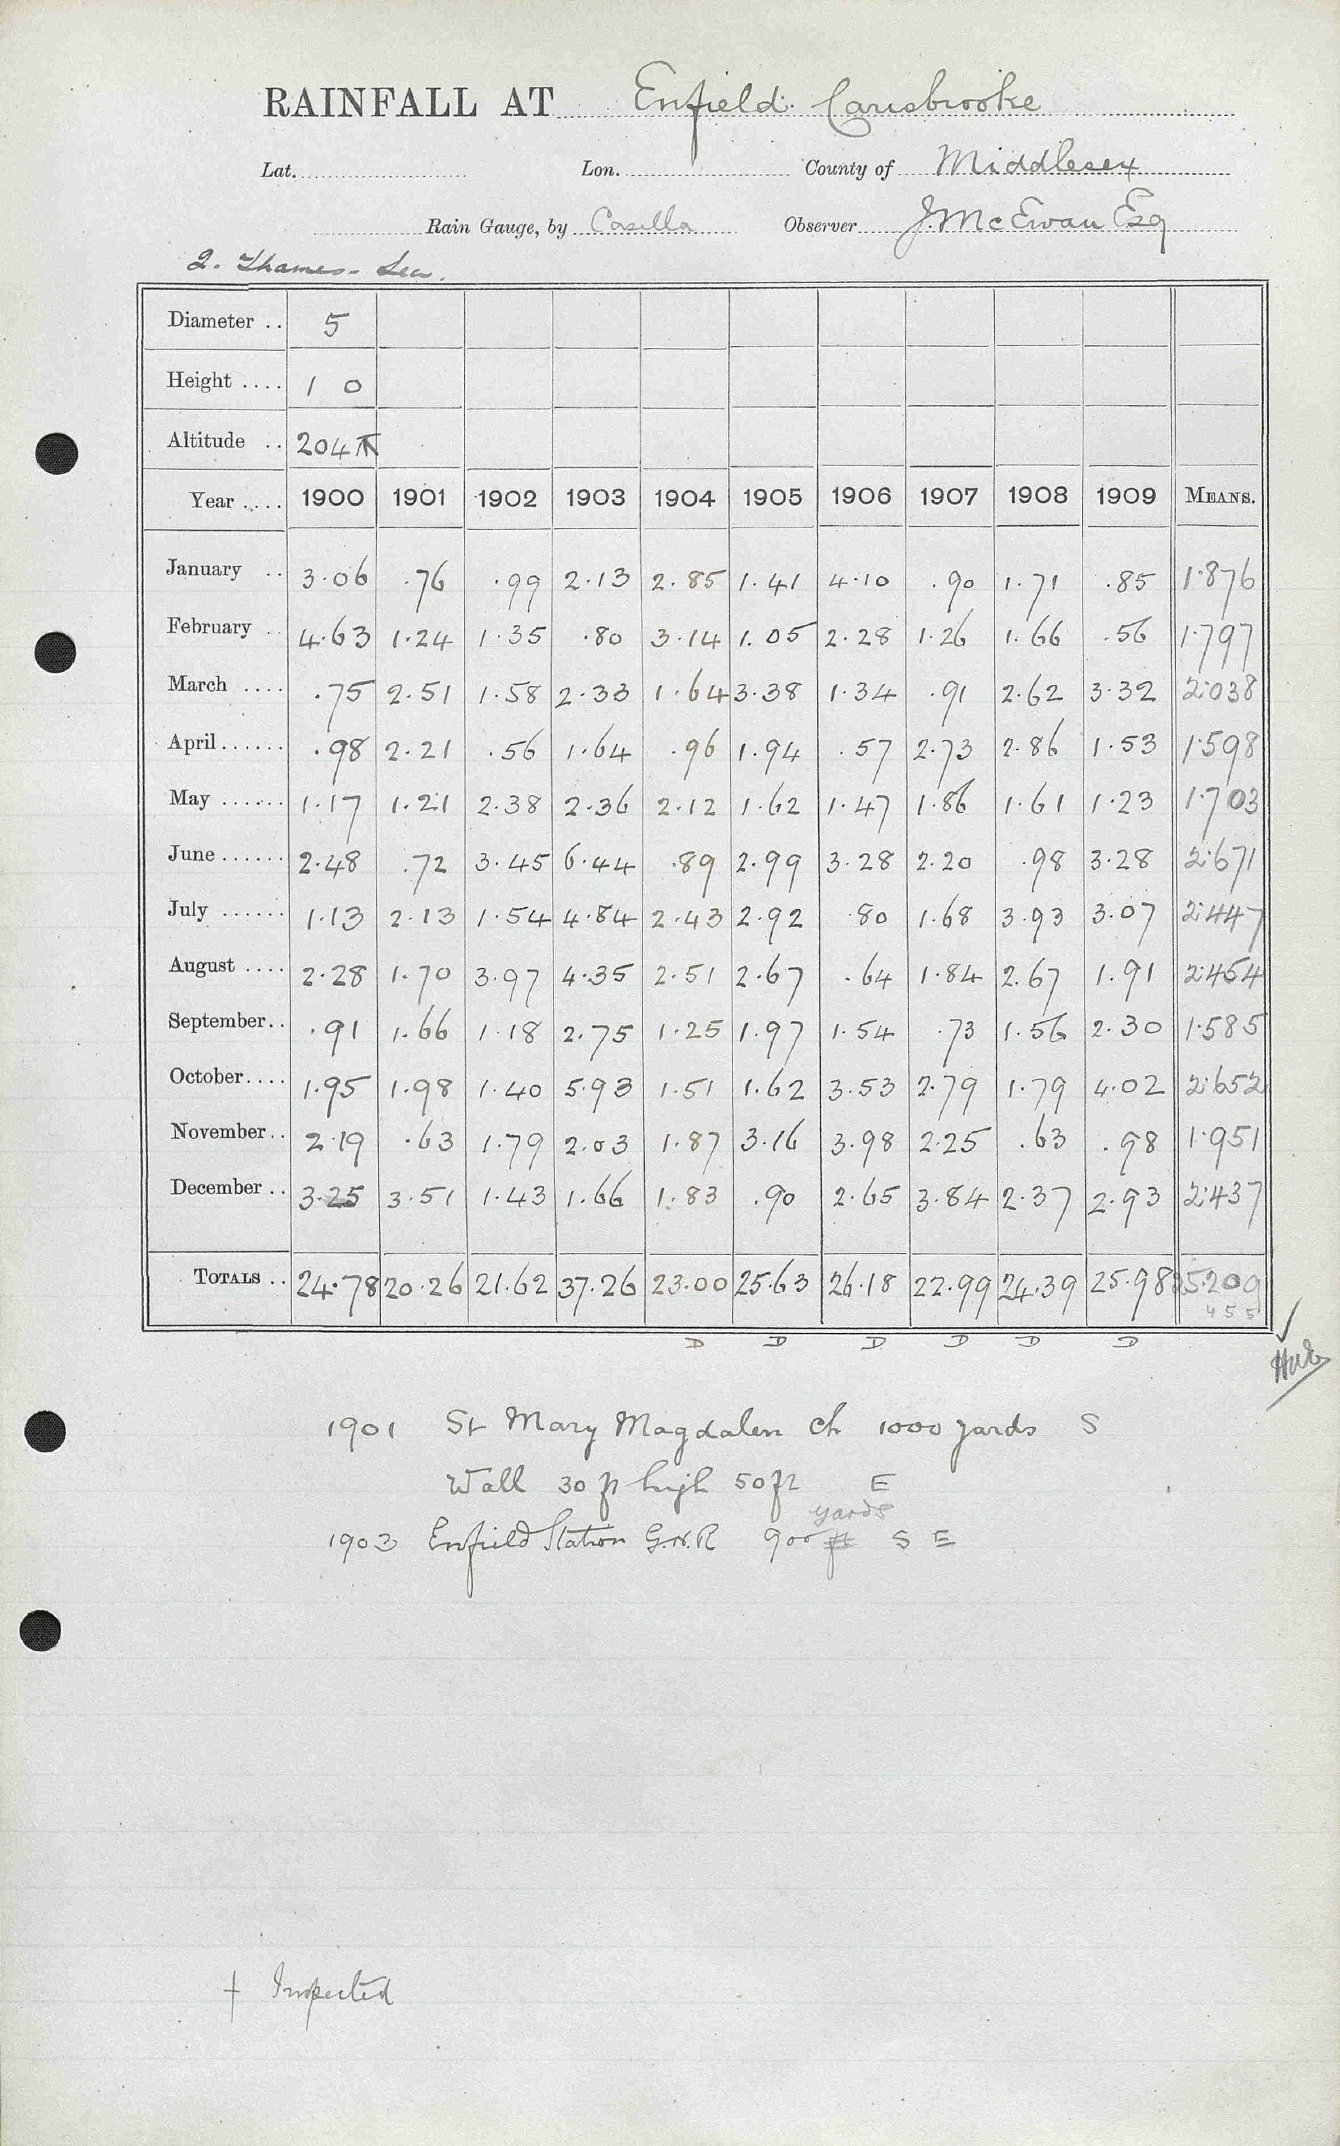 RAINFALL AT Enfield. Carisbrooke
Lat. Lon. County of Middlesex
Rain Gauge, by Casella Observer J. McEwan Esq
2. Thames - Lea.
Diameter .. 5
Height .... 1 0
Altitude .. 204 ft
Year .... 1900 1901 1902 1903 1904 1905 1906 1907 1908 1909 MEANS.
January .. 3.06 .76 .99 2.13 2.85 1.41 4.10 .90 1.71 .85 1.876
February .. 4.63 1.24 1.35 .80 3.14 1.05 2.28 1.26 1.66 .56 1.797
March .... .75 2.51 1.58 2.33 1.64 3.38 1.34 .91 2.62 3.32 2.038
April...... .98 2.21 .56 1.64 .96 1.94 .57 2.73 2.86 1.53 1.598
May ...... 1.17 1.21 2.38 2.36 2.12 1.62 1.47 1.86 1.61 1.23 1.703
June ...... 2.48 .72 3.45 6.44 .89 2.99 3.28 2.20 .98 3.28 2.671
July ...... 1.13 2.13 1.54 4.84 2.43 2.92 .80 1.68 3.93 3.07 2.447
August .... 2.28 1.70 3.97 4.35 2.51 2.67 .64 1.84 2.67 1.91 2.454
September.. .91 1.66 1.18 2.75 1.25 1.97 1.54 .73 1.56 2.30 1.585
October.... 1.95 1.98 1.40 5.93 1.51 1.62 3.53 2.79 1.79 4.02 2.652
November.. 2.19 .63 1.79 2.03 1.87 3.16 3.98 2.25 .63 .98 1.951
December .. 3.25 3.51 1.43 1.66 1.83 .90 2.65 3.84 2.37 2.93 2.437
TOTALS .. 24.78 20.26 21.62 37.26 23.00 25.63 26.18 22.99 24.39 25.98 25.209
4 5 5
D D D D D D
1901 St Mary Magdalen Ch 1000 yards S
Wall 30 ft high 50 ft E
yards
1903 Enfield Station G.N.R 900 ft S E
† Inspected